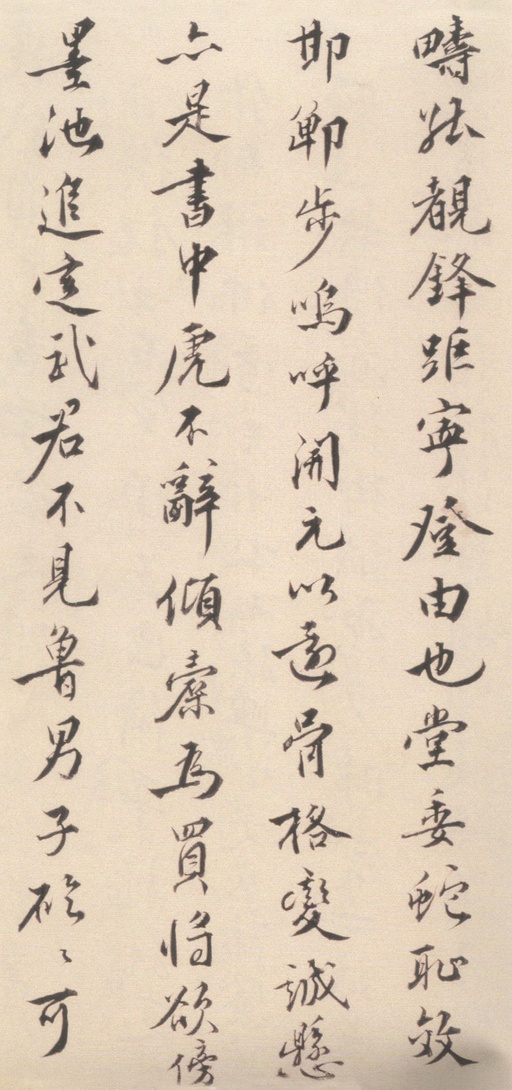 疇能覩鋒距寧登由也堂委蛇恥效
邯鄲步嗚呼開元以還骨格變誠懸
亦是書中虎不辭傾橐為買將欲傍
墨池進定武君不見魯男子硜〻可